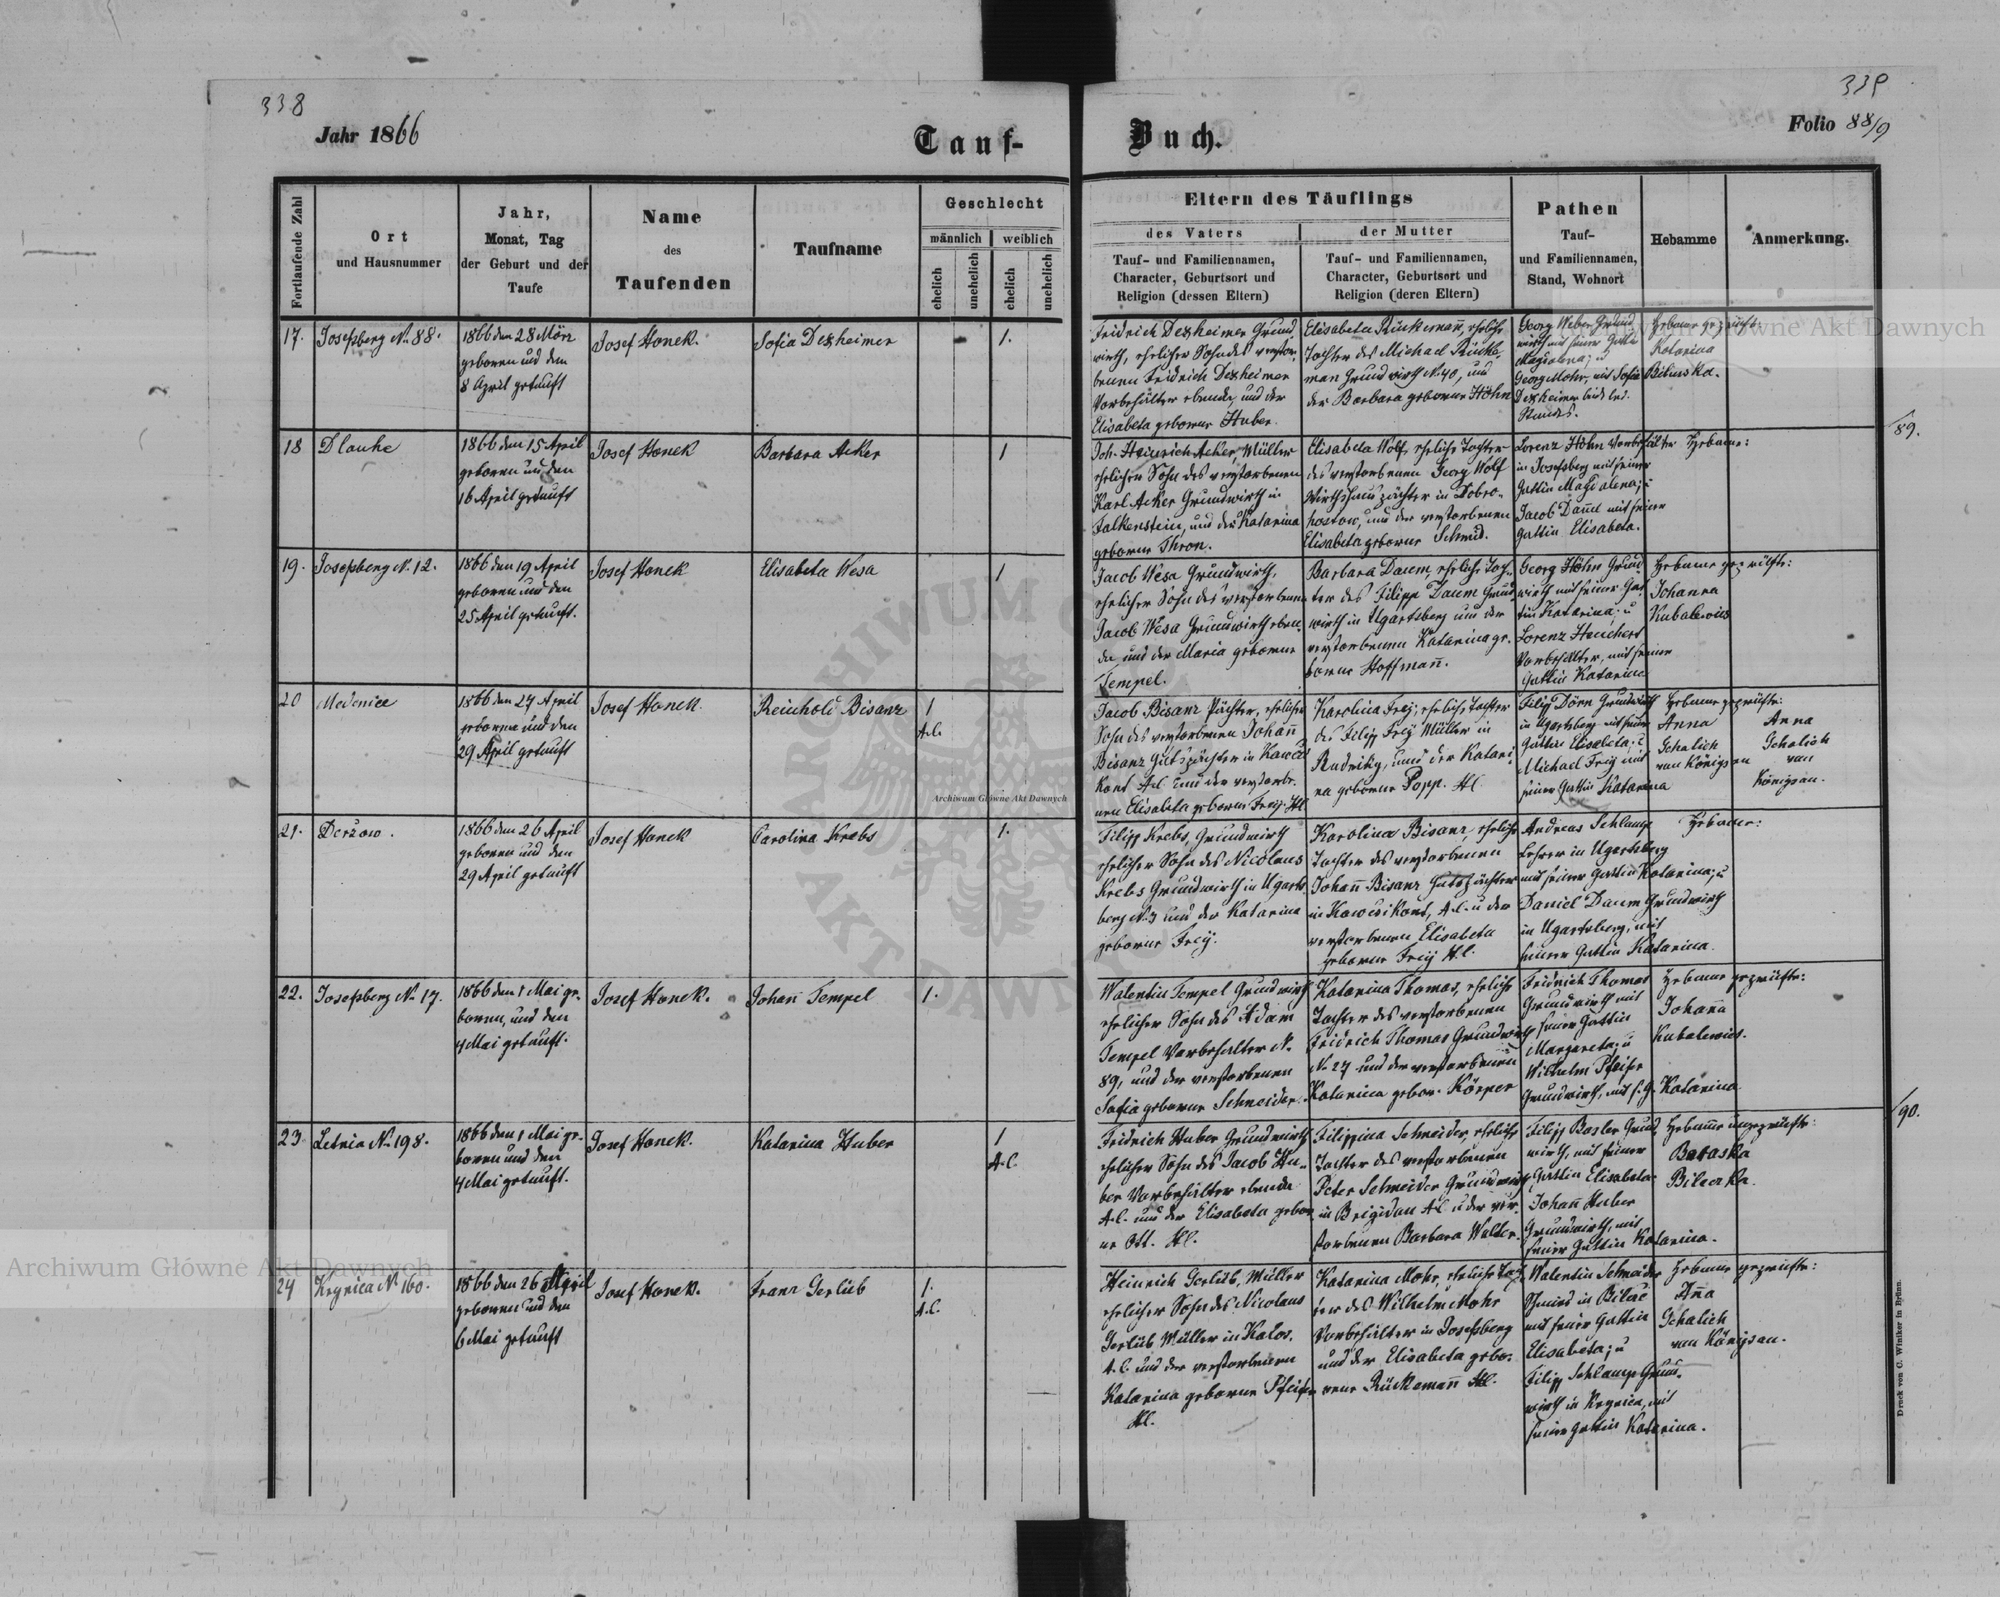 338
339
Jahr 1866
Tauf-
Buch.
Folio 88/9
Fortlaufende Zahl
Ort
und Hausnummer
Jahr,
Monat, Tag
der Geburt und der
Taufe
Name
des
Taufenden
Taufname
Geschlecht
männlich
weiblich
ehelich
unehelich
ehelich
unehelich
Eltern des Täuflings
des Vaters
der Mutter
Tauf- und Familiennamen,
Character, Geburtsort und
Religion (dessen Eltern)
Tauf- und Familiennamen,
Character, Geburtsort und
Religion (deren Eltern)
Pathen
Tauf-
und Familiennamen,
Stand, Wohnort
Hebamme
Anmerkung.
17.
Josefsberg No 88.
1866 den 28 März
geboren und den
8 April getauft
Josef Honek.
Sofia Dexheimer
1.
Fridrich Dexheimer Grund
wirth, ehelicher Sohn des verstor-
benen Fridrich Dexheimer
Vorbehälter ebenda, und der
Elisabeta geborene Huber.
Elisabeta Rückemañ, eheliche
Tochter des Michael Rücke-
man Grundwirth No 40, und
der Barbara geborene Höhn
Georg Weber Grund
wirth mit seiner Gattin
Magdalena; u
Georg Mohr, mit Sofia
Dexheimer beide led.
Standes.
Hebame geprüfte:
Katarina
Bilinska.
18
Dlauhe
1866 den 15 April
geboren und den
16 April getauft
Josef Honek
Barbara Acker
1
Joh. Heinrich Acker, Müller
ehelicher Sohn des verstorbenen
Karl Acker Grundwirth in
Falkenstein, und der Katarina
geborene Thron.
Elisabeta Wolf, eheliche Tochter
des verstorbenen Georg Wolf
Wirthshaus pächter in Dobro-
hostow, und der verstorbenen
Elisabeta geborene Schmid.
Lorenz Höhn Vorbehälter
in Josefsberg mit seiner
Gattin Magdalena; u
Jacob Daum mit seiner
Gattin Elisabeta.
Hebame:
89.
19.
Josefsberg No 12.
1866 den 19 April
geboren und den
25 April getauft.
Josef Honek
Elisabeta Wesa
1
Jacob Wesa Grundwirth,
ehelicher Sohn des verstorbenen
Jacob Wesa Grundwirth eben-
da und der Maria geborene
Tempel.
Barbara Daum, eheliche Toch-
ter des Filipp Daum Grund
wirth in Ugartsberg und der
verstorbenen Katarina ge-
borene Hoffmañ.
Georg Höhn Grund
wirth mit seiner Gat
tin Katarina; u
Lorenz Heuchert
Vorbehälter, mit seiner
Gattin Katarina
Hebame geprüfte:
Johanna
Kubalewicz
20
Medenice
1866 den 27 April
geborene und den
29 April getauft
Josef Honek.
Reinhold Bisanz
1
A.C.
Jacob Bisanz Pächter, ehelicher
Sohn des verstorbenen Johañ
Bisanz Gutspächter in Kawcze
Kont A.C. und der verstorbe-
nen Elisabeta geborene Frey. H.C.
Karolina Frey, eheliche Tochter
des Filipp Frey Müller in
Rudniky, und der Katari-
na geborene Popp. H.C.
Filip Dörn Grundwirth
in Ugartsberg mit seiner
Gattin Elisabeta; u
Michael Frey mit
seiner Gattin Katarina
Hebame geprüfte:
Anna
Schalich
von Königsau
Anna
Schalich
von
Königsau.
21.
Deržow.
1866 den 26 April
geboren und den
29 April getauft
Josef Honek
Carolina Krebs
1.
Filipp Krebs, Grundwirth
ehelicher Sohn des Nicolaus
Krebs Grundwirth in Ugarts-
berg No 3 und der Katarina
geborene Frey.
Karolina Bisanz, eheliche
Tochter des verstorbenen
Johañ Bisanz Gutspächter
in Kowczikont, A.C. u der
verstorbenen Elisabeta
geborene Frey H.C.
Andreas Schlamp
Lehrer in Ugartsberg
mit seiner Gattin Katarina; u
Daniel Daum Grundwirth
in Ugartsberg, mit
seiner Gattin Katarina.
Hebame:
22.
Josefsberg No 17.
1866 den 1 Mai ge-
boren, und den
4 Mai getauft.
Josef Honek.
Johañ Tempel
1.
Walentin Tempel Grundwirth
ehelicher Sohn des Adam
Tempel Vorbehälter No
89, und der verstorbenen
Sofia geborene Schneider.
Katarina Thomas, eheliche
Tochter des verstorbenen
Fridrich Thomas Grundwirth
No 27 und der verstorbenen
Katarina gebor. Körper
Fridrich Thomas
Grundwirth mit
seiner Gattin
Margareta; u
Wilhelm Pfeifer
Grundwirth, mit s. G. Katarina
Hebame geprüfte:
Johaña
Kubalewicz.
90.
23
Letnia No 198.
1866 den 1 Mai ge-
boren und den
4 Mai getauft.
Josef Honek.
Katarina Huber
1
A.C.
Fridrich Huber Grundwirth
ehelicher Sohn des Jacob Hu-
ber Vorbehälter ebenda
A.C. und der Elisabeta gebor
ne Ott. H.C.
Filippina Schneider, eheliche
Tochter des verstorbenen
Peter Schneider Grundwirth
in Brigidau A.C. u der ver-
storbenen Barbara Walter.
Filipp Basler Grund
wirth, mit seiner
Gattin Elisabeta
Johañ Huber
Grundwirth, mit
seiner Gattin Katarina.
Hebame ungeprüfte:
Baraska
Bileczka.
24
Krynica No 160.
1866 den 26 April
geboren und den
6 Mai getauft
Josef Honek.
Franz Gerlüb
1.
A.C.
Heinrich Gerlüb, Müller
ehelicher Sohn des Nicolaus
Gerlüb Müller in Kalos.
A.C. und der verstorbenen
Katarina geborene Pfeifer
H.C.
Katarina Mohr, eheliche Toch
ter des Wilhelm Mohr
Vorbehälter in Josefsberg
und der Elisabeta gebo-
rene Rückemañ H.C.
Walentin Schneider
Schmied in Bilcze
mit seiner Gattin
Elisabeta; u
Filipp Schlamp Grund-
wirth in Krynica, mit
seiner Gattin Katarina.
Hebame geprüfte:
Aña
Schalich
von Königsau.
Druck von C. Winiker in Brünn.
Archiwum Główne Akt Dawnych
Archiwum Główne Akt Dawnych
Archiwum Główne Akt Dawnych
ARCHIWUM G
AKT DAWNYC